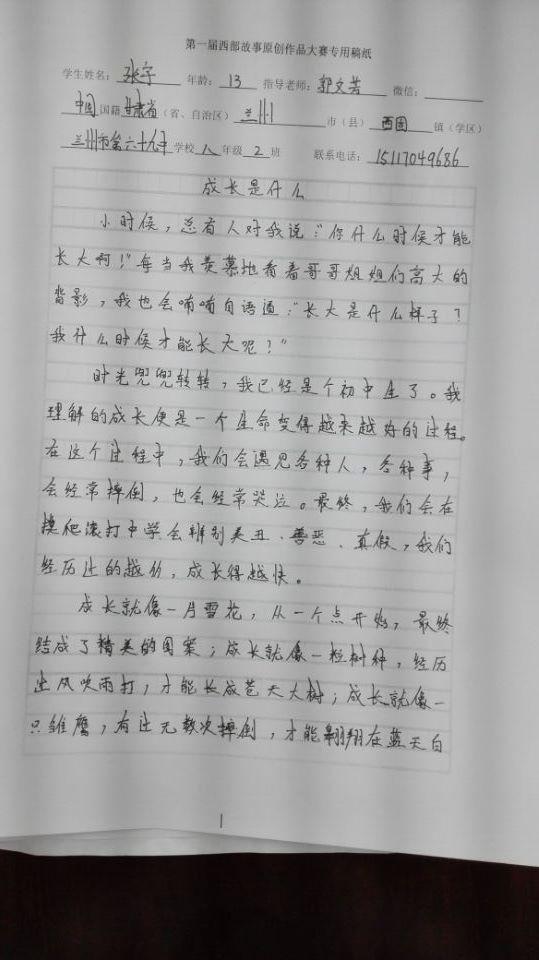 第一届西部故事原创作品大赛专用稿纸
学生姓名：张宇 年龄：13 指导老师：郭文芳 微信：
中国国籍甘肃省（省、自治区）兰州市（县）西固镇（学区）
兰州市第六十九中学校八年级2班 联系电话：15117049686
成长是什么
小时候，总有人对我说：“你什么时候才能
长大啊！”每当我羡慕地看着哥哥姐姐们高大的
背影，我也会喃喃自语道：“长大是什么样子？
我什么时候才能长大呢？”
时光兜兜转转，我已经是个初中生了。我
理解的成长便是一个生命变得越来越好的过程。
在这个过程中，我们会遇见各种人，各种事，
会经常摔倒，也会经常哭泣。最终，我们会在
摸爬滚打中学会辨别美丑、善恶、真假，我们
经历过的越价，成长得越快。
成长就像一片雪花，从一个点开始，最终
结成了精美的图案；成长就像一粒树种，经历
过风吹雨打，才能长成苍天大树；成长就像一
只雏鹰，有过无数次摔倒，才能翱翔在蓝天白
1